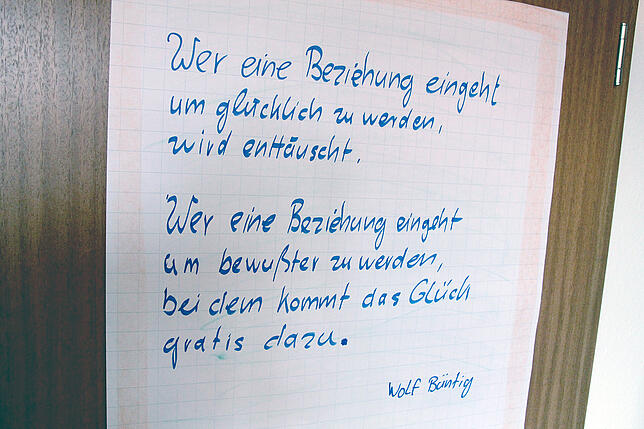 Wer eine Beziehung eingeht
um glücklich zu werden,
wird enttäuscht.
Wer eine Beziehung eingeht
um bewußter zu werden,
bei dem kommt das Glück
gratis dazu.
Wolf Büntig